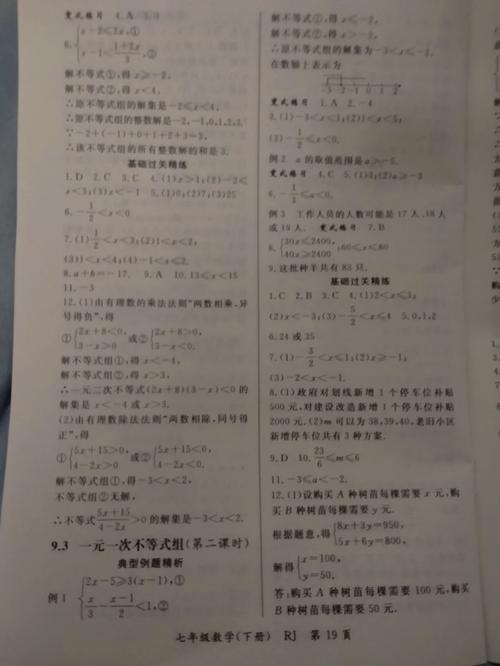 变式练习 1.A 2.
6.{x-2≤2x,①
x-1<(1+2x)/3,②
解不等式①,得x≥-2,
解不等式②,得x<4,
∴原不等式组的解集是-2≤x<4,
∴原不等式组的整数解是-2,-1,0,1,2,3.
∵-2+(-1)+0+1+2+3=3,
∴该不等式组的所有整数解的和是3.
基础过关精练
1.D 2.C 3.C 4.(1)x>1;(2)-2≤
x<3;(3)x<-1 5.(1)0;(2)7;(3)25
6.-1/2<x<0
7.(1)1/2<x<3;(2)1<x<2;
(3)1<x<4;(4)-1<x≤2.
8.a+b=-17. 9.A 10.13≤x<15
11.-3
12.(1)由有理数的乘法法则“两数相乘,异
号得负”,得
①{2x+8<0, 3-x>0 或②{2x+8>0, 3-x<0.
解不等式组①,得x<-4,
解不等式组②,得x>3,
∴一元二次不等式(2x+8)(3-x)<0的
解集是x<-4或x>3.
(2)由有理数除法法则“两数相除,同号得
正”,得
①{5x+15>0, 4-2x>0 或②{5x+15<0, 4-2x<0.
解不等式组①,得-3<x<2,
不等式组②无解,
∴不等式(5x+15)/(4-2x)>0的解集是-3<x<2.
9.3 一元一次不等式组(第二课时)
典型例题精析
例1 {2x-5≥3(x-1),①
x/3-(x-1)/2<1,②
解不等式①,得x≤-2,
解不等式②,得x>-3,
∴原不等式组的解集为-3<x≤-2.
在数轴上表示为
-3 -2 -1 0 1 2
变式练习 1.A 2.-4
3.(1)-3<x<1;(2)1<x<5;
(3)-1/2≤x<0.
例2 a的取值范围是a>-5.
变式练习 4.C 5.(1)3;(2)a≥-3
6.-1/3≤a<0.
例3 工作人员的人数可能是17人、18人
或19人. 变式练习 7.B
8.{30x≤2400, 40x≥2400 ;60≤x≤80
9.这批种羊共有83只.
基础过关精练
1.C 2.B 3.C 4.(1)2<x≤3;
(2)x<-3;(3)-5/2<x≤4 5.0,1,2
6.24或35
7.(1)-3/2<x<1;(2)x>-1;
(3)-2<x<-1.
8.(1)政府对划线新增1个停车位补贴
500元,对建设改造新增1个停车位补贴
2000元.(2)m可以为38,39,40,老旧小区
新增停车位共有3种方案.
9.D 10.23/6≤m≤6
11.-3≤a<-2.
12.(1)设购买A种树苗每棵需要x元,购
买B种树苗每棵需要y元.
根据题意,得{8x+3y=950, 5x+6y=800,
解得{x=100, y=50.
答:购买A种树苗每棵需要100元,购买
B种树苗每棵需要50元.
七年级数学(下册) RJ 第19页